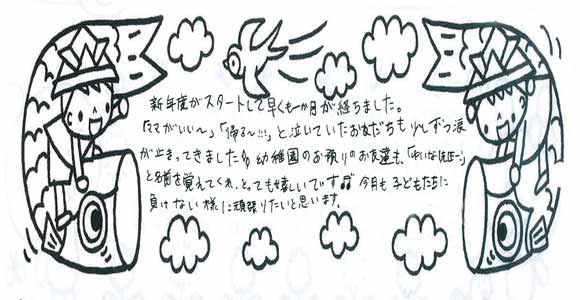 新年度がスタートして早くも一か月が経ちました。
「ママがいい〜」「帰る〜!!!」と泣いていたお友だちも少しずつ涙
が止まってきました♪幼稚園のお預りのお友達も、「れいなせんせー」
と名前を覚えてくれ、とっても嬉しいです♫今月も子どもたちに
負けない様に頑張りたいと思います。